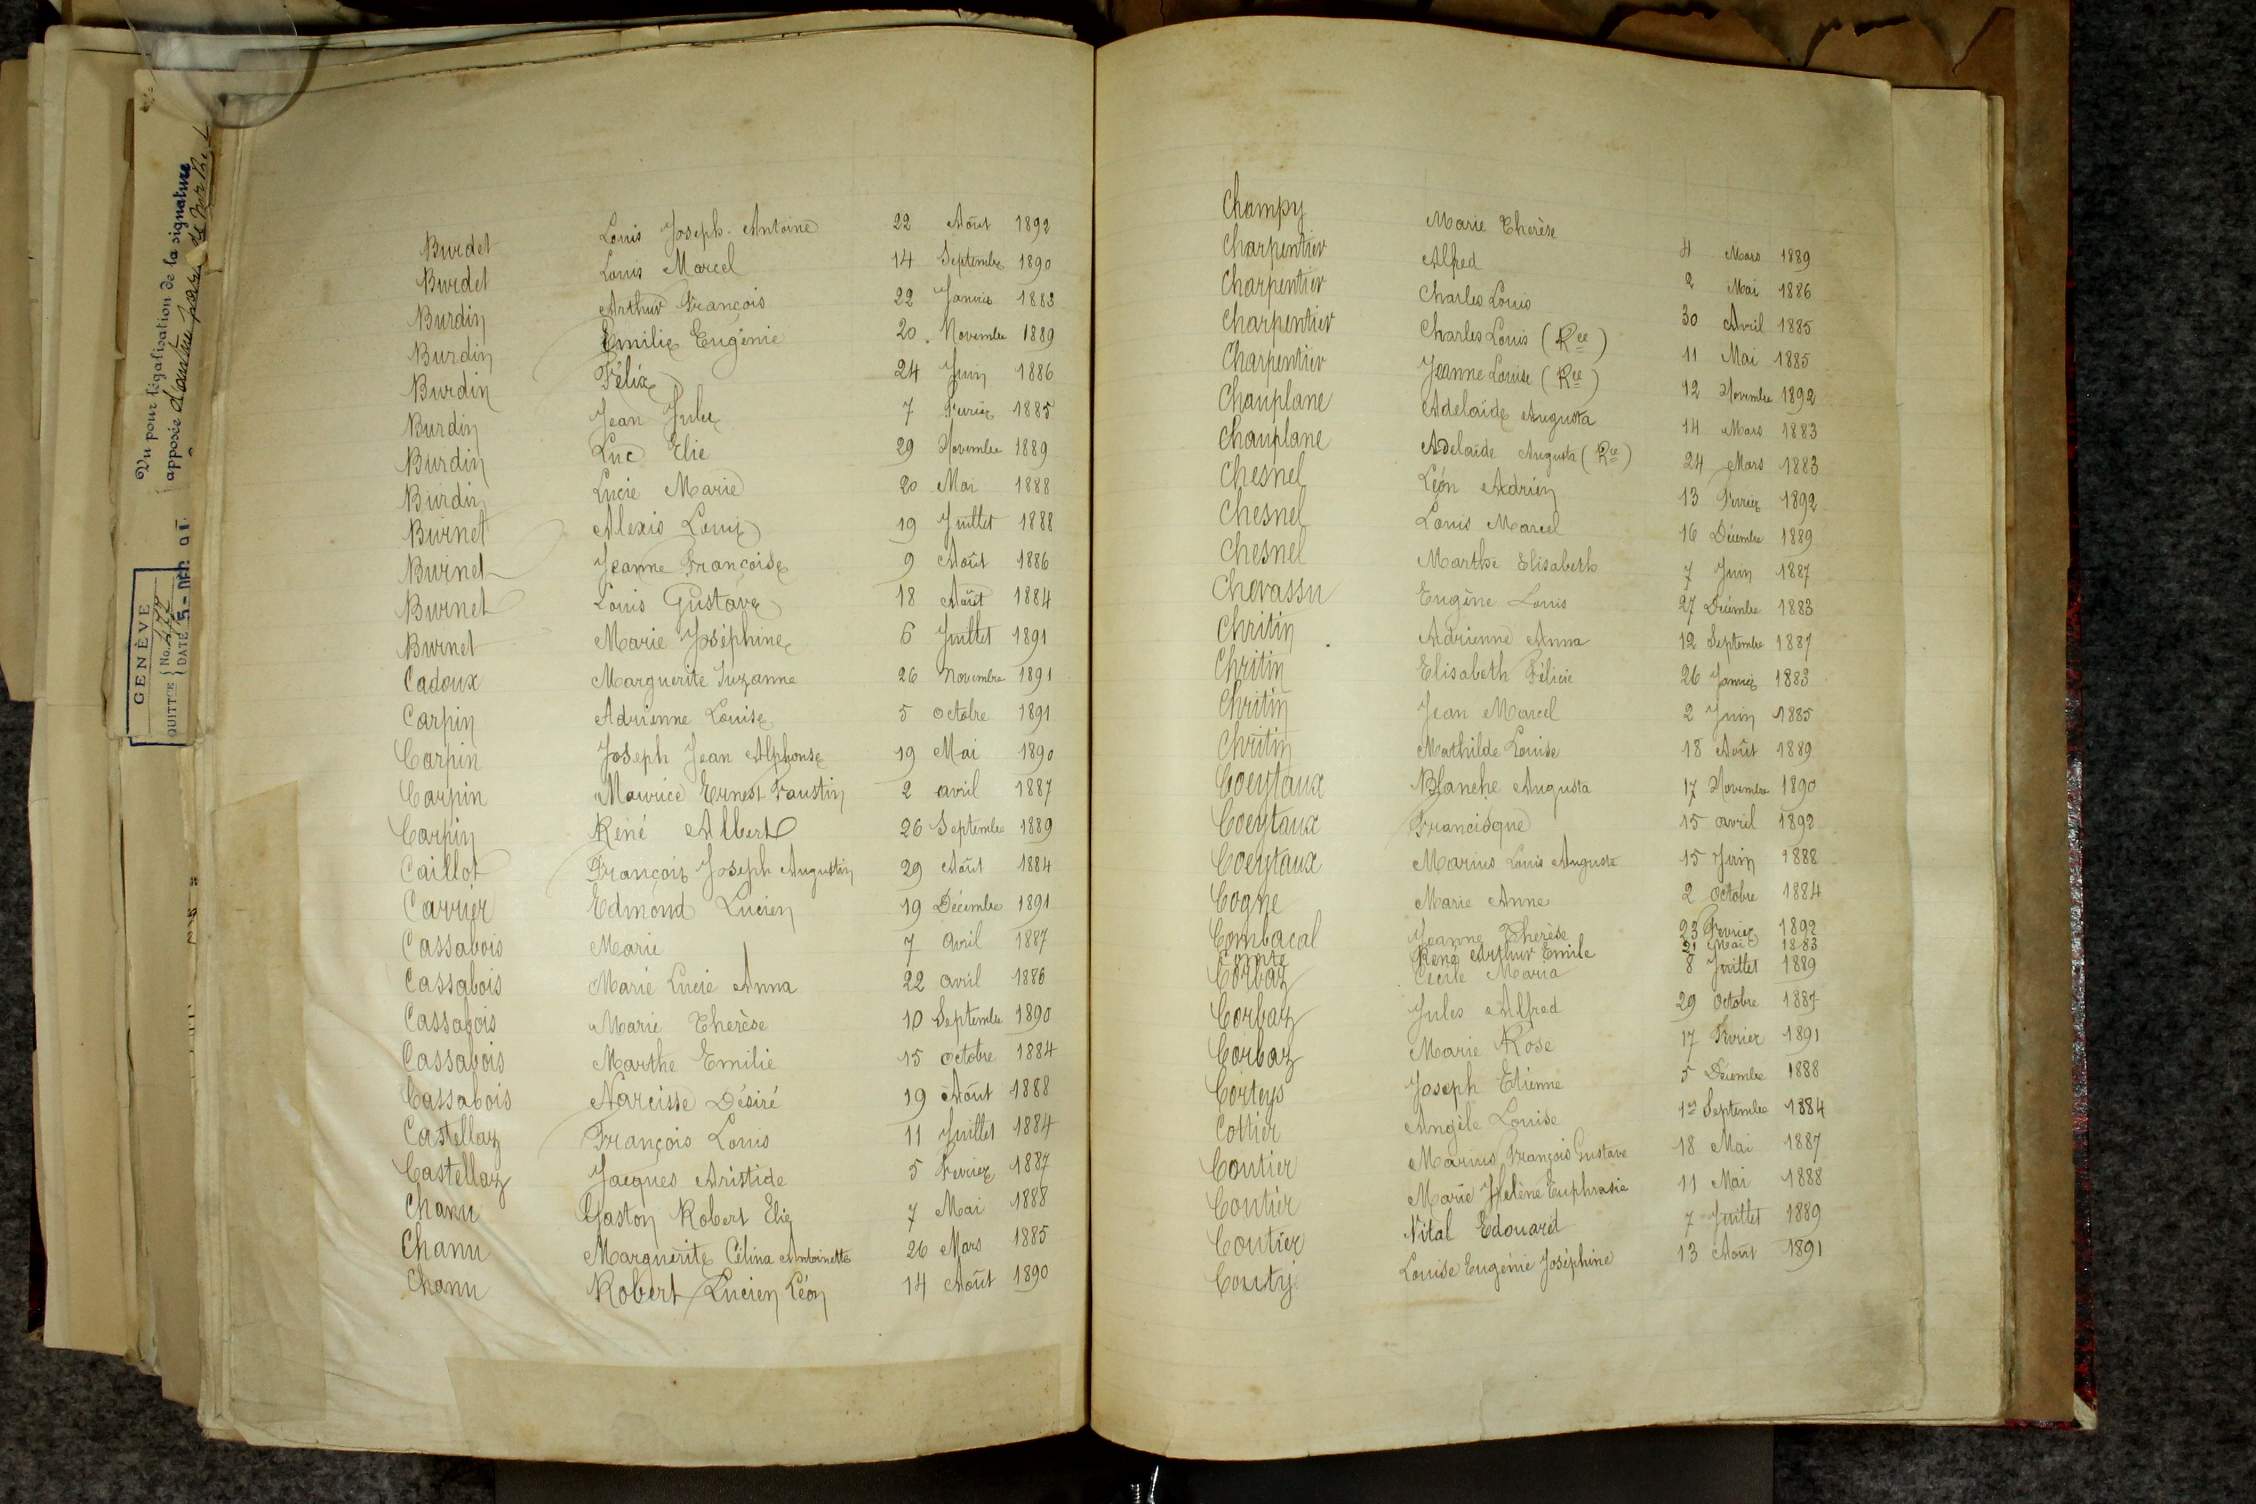 Vu pour légalisation de la signature
apposée d'autre part de
GENÈVE
QUITTCE No. 272
DATE 5 - DEC
Burdet Louis Joseph-Antoine 22 Août 1892
Burdet Louis Marcel 14 Septembre 1890
Burdin Arthur François 22 Janvier 1883
Burdin Emilie Eugénie 20 Novembre 1889
Burdin Félix 24 Juin 1886
Burdin Jean Jules 7 Fevrier 1885
Burdin Luc Elie 29 Novembre 1889
Burdin Lucie Marie 20 Mai 1888
Burnet Alexis Louis 19 Juillet 1888
Burnet Jeanne Françoise 9 Août 1886
Burnet Louis Gustave 18 Août 1884
Burnet Marie Joséphine 6 Juillet 1891
Cadoux Marguerite Suzanne 26 Novembre 1891
Carpin Adrienne Louise 5 octobre 1891
Carpin Joseph Jean Alphonse 19 Mai 1890
Carpin Maurice Ernest Faustin 2 avril 1887
Carpin René Albert 26 Septembre 1889
Caillot François Joseph Augustin 29 Août 1884
Carrier Edmond Lucien 19 Décembre 1891
Cassabois Marie 7 avril 1887
Cassabois Marie Lucie Anna 22 avril 1886
Cassabois Marie Therèse 10 Septembre 1890
Cassabois Marthe Emilie 15 octobre 1884
Cassabois Narcisse Désiré 19 Août 1888
Castellaz François Louis 11 Juillet 1884
Castellaz Jacques Aristide 5 Fevrier 1887
Chanu Gaston Robert Elie 7 Mai 1888
Chanu Marguerite Célina Antoinette 26 Mars 1885
Chanu Robert Lucien Léon 14 Août 1890
Champy Marie Therèse 4 Mars 1889
Charpentier Alfred 2 Mai 1886
Charpentier Charles Louis 30 Avril 1885
Charpentier Charles Louis (Rce) 11 Mai 1885
Charpentier Jeanne Louise (Rce) 12 Novembre 1892
Chauplane Adelaïde Augusta 14 Mars 1883
Chauplane Adelaïde Augusta (Rce) 24 Mars 1883
Chesnel Léon Adrien 13 Fevrier 1892
Chesnel Louis Marcel 16 Décembre 1889
Chesnel Marthe Elisabeth 7 Juin 1887
Chevassu Eugène Louis 27 Décembre 1883
Chritin Adrienne Anna 12 Septembre 1887
Chritin Elisabeth Félicie 26 Janvier 1883
Chritin Jean Marcel 2 Juin 1885
Chritin Mathilde Louise 18 Août 1889
Coeytaux Blanche Augusta 17 Novembre 1890
Coeytaux Francisque 15 avril 1892
Coeytaux Marius Louis Auguste 15 Juin 1888
Cogne Marie Anne 2 octobre 1884
Combacal Jeanne Therèse 23 Fevrier 1892
Comte René Arthur Emile 21 Mai 1883
Corbaz Cécile Maria 8 Juillet 1889
Corbaz Jules Alfred 29 octobre 1887
Corbaz Marie Rose 17 Fevrier 1891
Corteys Joseph Etienne 5 Décembre 1888
Cottier Angèle Louise 1er Septembre 1884
Coutier Marius François Gustave 18 Mai 1887
Coutier Marie Hélène Euphrasie 11 Mai 1888
Coutier Vital Edouard 7 Juillet 1889
Couty Louise Eugénie Joséphine 13 Août 1891